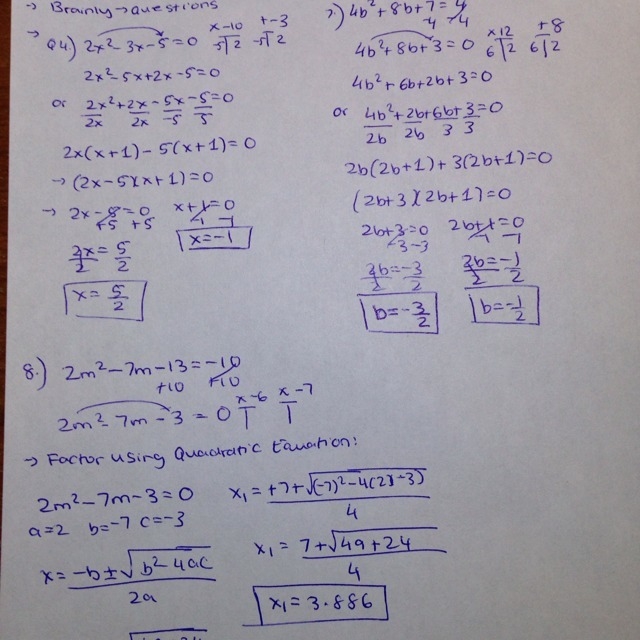 → Brainly → questions
→ Q4.) 2x² - 3x - 5 = 0   x-10   +-3
-5|2   -5|2
2x² - 5x + 2x - 5 = 0
or 2x² + 2x - 5x - 5 = 0
2x   2x   -5   5
2x(x+1) - 5(x+1) = 0
→ (2x-5)(x+1) = 0
→ 2x - 5 = 0   x+1 = 0
+5   +5   -1   -1
2x = 5   x = -1
2   2
x = 5/2
7.) 4b² + 8b + 7 = 4
-4   -4
4b² + 8b + 3 = 0   x12   +8
6|2   6|2
4b² + 6b + 2b + 3 = 0
or 4b² + 2b + 6b + 3 = 0
2b   2b   3   3
2b(2b+1) + 3(2b+1) = 0
(2b+3)(2b+1) = 0
2b+3 = 0   2b+1 = 0
-3 -3   -1   -1
2b = -3   2b = -1
2   2   2   2
b = -3/2   b = -1/2
8.) 2m² - 7m - 13 = -10
+10   +10
2m² - 7m - 3 = 0   x-6   x-7
→ Factor using Quadratic Equation:
2m² - 7m - 3 = 0
a=2   b=-7   c=-3
x = -b ± √b² - 4ac
2a
x₁ = +7 + √(-7)² - 4(2)(-3)
4
x₁ = 7 + √49 + 24
4
x₁ = 3.886